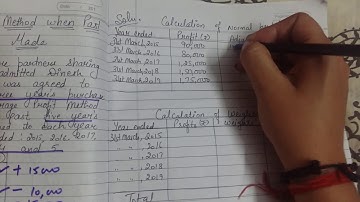 Method when Past
Made
re partners sharing
admitted Dinesh
was agreed to
ree year's purchase
rage Profit Method
last five year's
ed to each year
ended: 2015, 2016, 2017,
4 and 5
+ 15000
- 10,000
Soln. Calculation of Normal
Year ended Profit (₹)
31st March, 2015 90,000
31st March, 2016 80,000
31st March, 2017
31st March, 2018
31st March, 2019
Calculation of Weigh
Year ended Profits (₹) Weights
31st March, 2015
" " , 2016
" " , 2017
" " , 2018
" " , 2019
Total